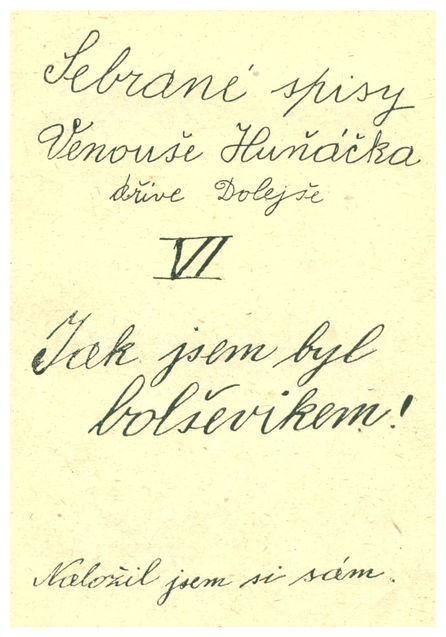 Sebrané spisy
Venouše Huňáčka
dříve Dolejše
VI
Jak jsem byl
bolševikem!
Naložil jsem si sám.